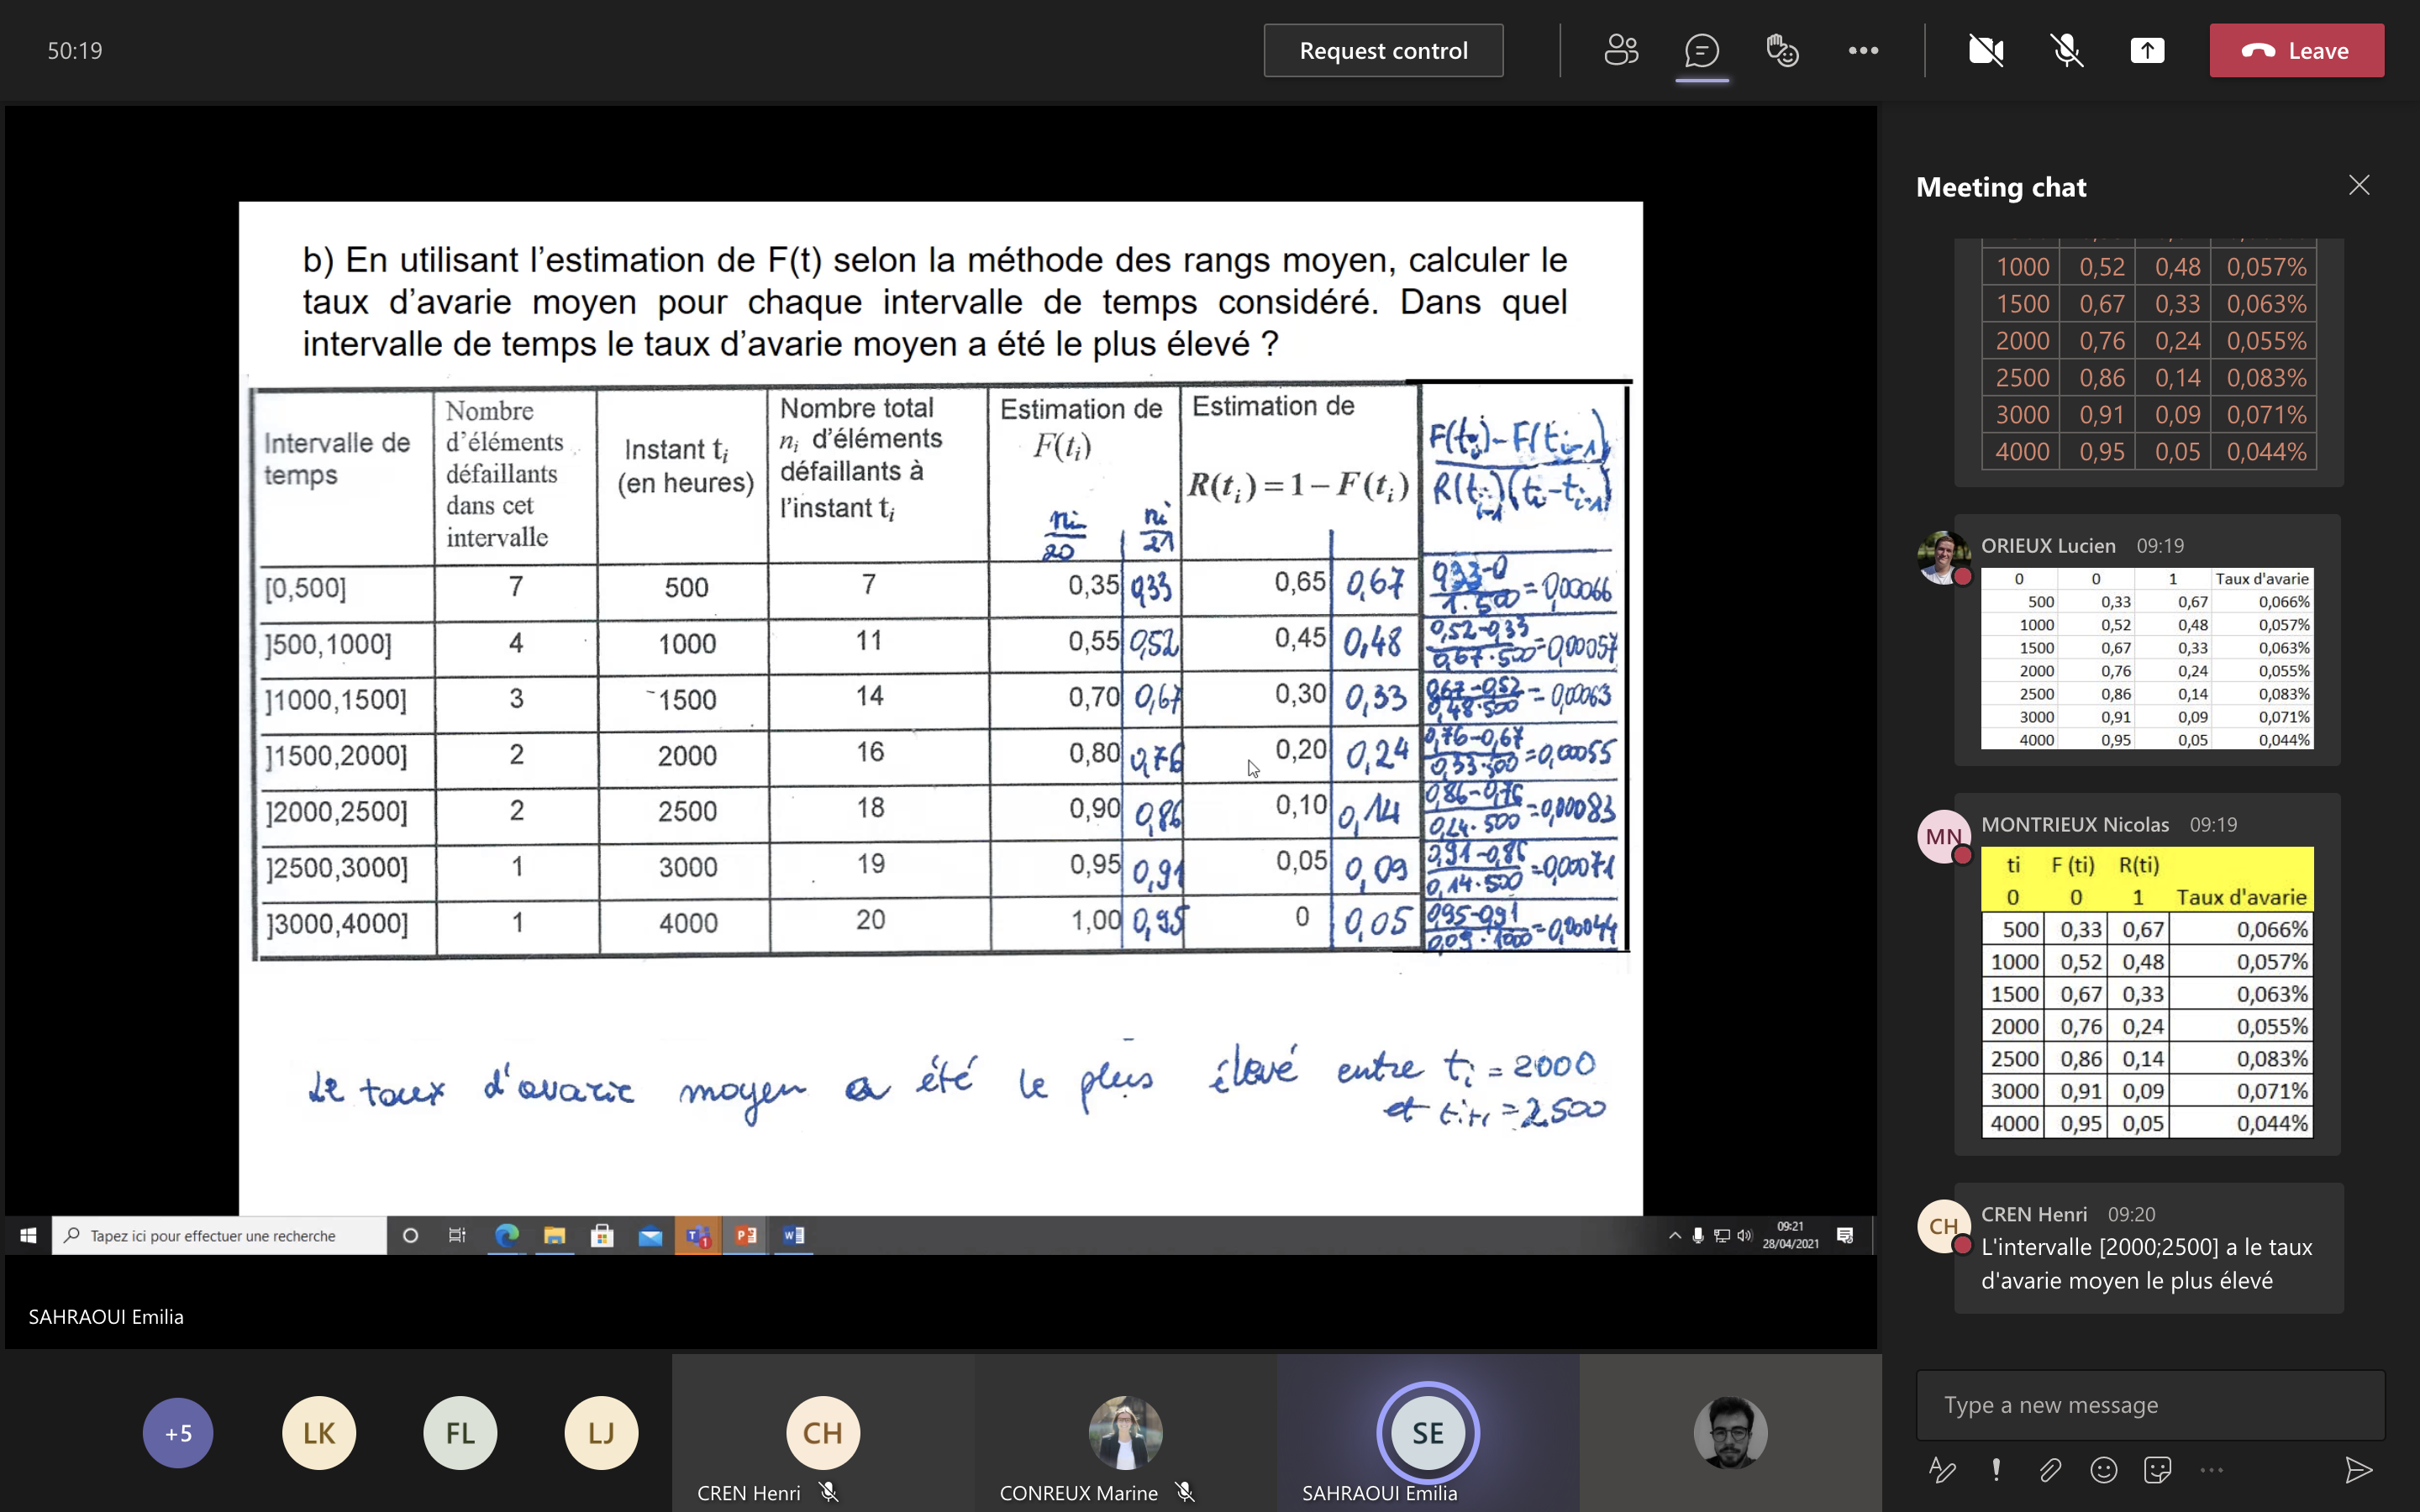 50:19
Request control
Leave
b) En utilisant l'estimation de F(t) selon la méthode des rangs moyen, calculer le
taux d'avarie moyen pour chaque intervalle de temps considéré. Dans quel
intervalle de temps le taux d'avarie moyen a été le plus élevé ?
Intervalle de temps
Nombre d'éléments défaillants dans cet intervalle
Instant ti (en heures)
Nombre total ni d'éléments défaillants à l'instant ti
Estimation de F(ti)
ni/20 ni/21
Estimation de R(ti) = 1 – F(ti)
F(ti)-F(ti-1) / R(ti-1)(ti-ti-1)
[0,500] 7 500 7 0,35 0,33 0,65 0,67 0,33-0 / 1.500 = 0,00066
]500,1000] 4 1000 11 0,55 0,52 0,45 0,48 0,52-0,33 / 0,67.500 = 0,00057
]1000,1500] 3 1500 14 0,70 0,67 0,30 0,33 0,67-0,52 / 0,48.500 = 0,00063
]1500,2000] 2 2000 16 0,80 0,76 0,20 0,24 0,76-0,67 / 0,33.500 = 0,00055
]2000,2500] 2 2500 18 0,90 0,86 0,10 0,14 0,86-0,76 / 0,24.500 = 0,00083
]2500,3000] 1 3000 19 0,95 0,91 0,05 0,09 0,91-0,86 / 0,14.500 = 0,00071
]3000,4000] 1 4000 20 1,00 0,95 0 0,05 0,95-0,91 / 0,09.1000 = 0,00044
Le taux d'avarie moyen a été le plus élevé entre ti = 2000
et ti+1 = 2500
Tapez ici pour effectuer une recherche
09:21
28/04/2021
SAHRAOUI Emilia
+5
LK
FL
LJ
CH
SE
CREN Henri
CONREUX Marine
SAHRAOUI Emilia
Meeting chat
1000 0,52 0,48 0,057%
1500 0,67 0,33 0,063%
2000 0,76 0,24 0,055%
2500 0,86 0,14 0,083%
3000 0,91 0,09 0,071%
4000 0,95 0,05 0,044%
ORIEUX Lucien 09:19
0 0 1 Taux d'avarie
500 0,33 0,67 0,066%
1000 0,52 0,48 0,057%
1500 0,67 0,33 0,063%
2000 0,76 0,24 0,055%
2500 0,86 0,14 0,083%
3000 0,91 0,09 0,071%
4000 0,95 0,05 0,044%
MN
MONTRIEUX Nicolas 09:19
ti F (ti) R(ti)
0 0 1 Taux d'avarie
500 0,33 0,67 0,066%
1000 0,52 0,48 0,057%
1500 0,67 0,33 0,063%
2000 0,76 0,24 0,055%
2500 0,86 0,14 0,083%
3000 0,91 0,09 0,071%
4000 0,95 0,05 0,044%
CH
CREN Henri 09:20
L'intervalle [2000;2500] a le taux
d'avarie moyen le plus élevé
Type a new message